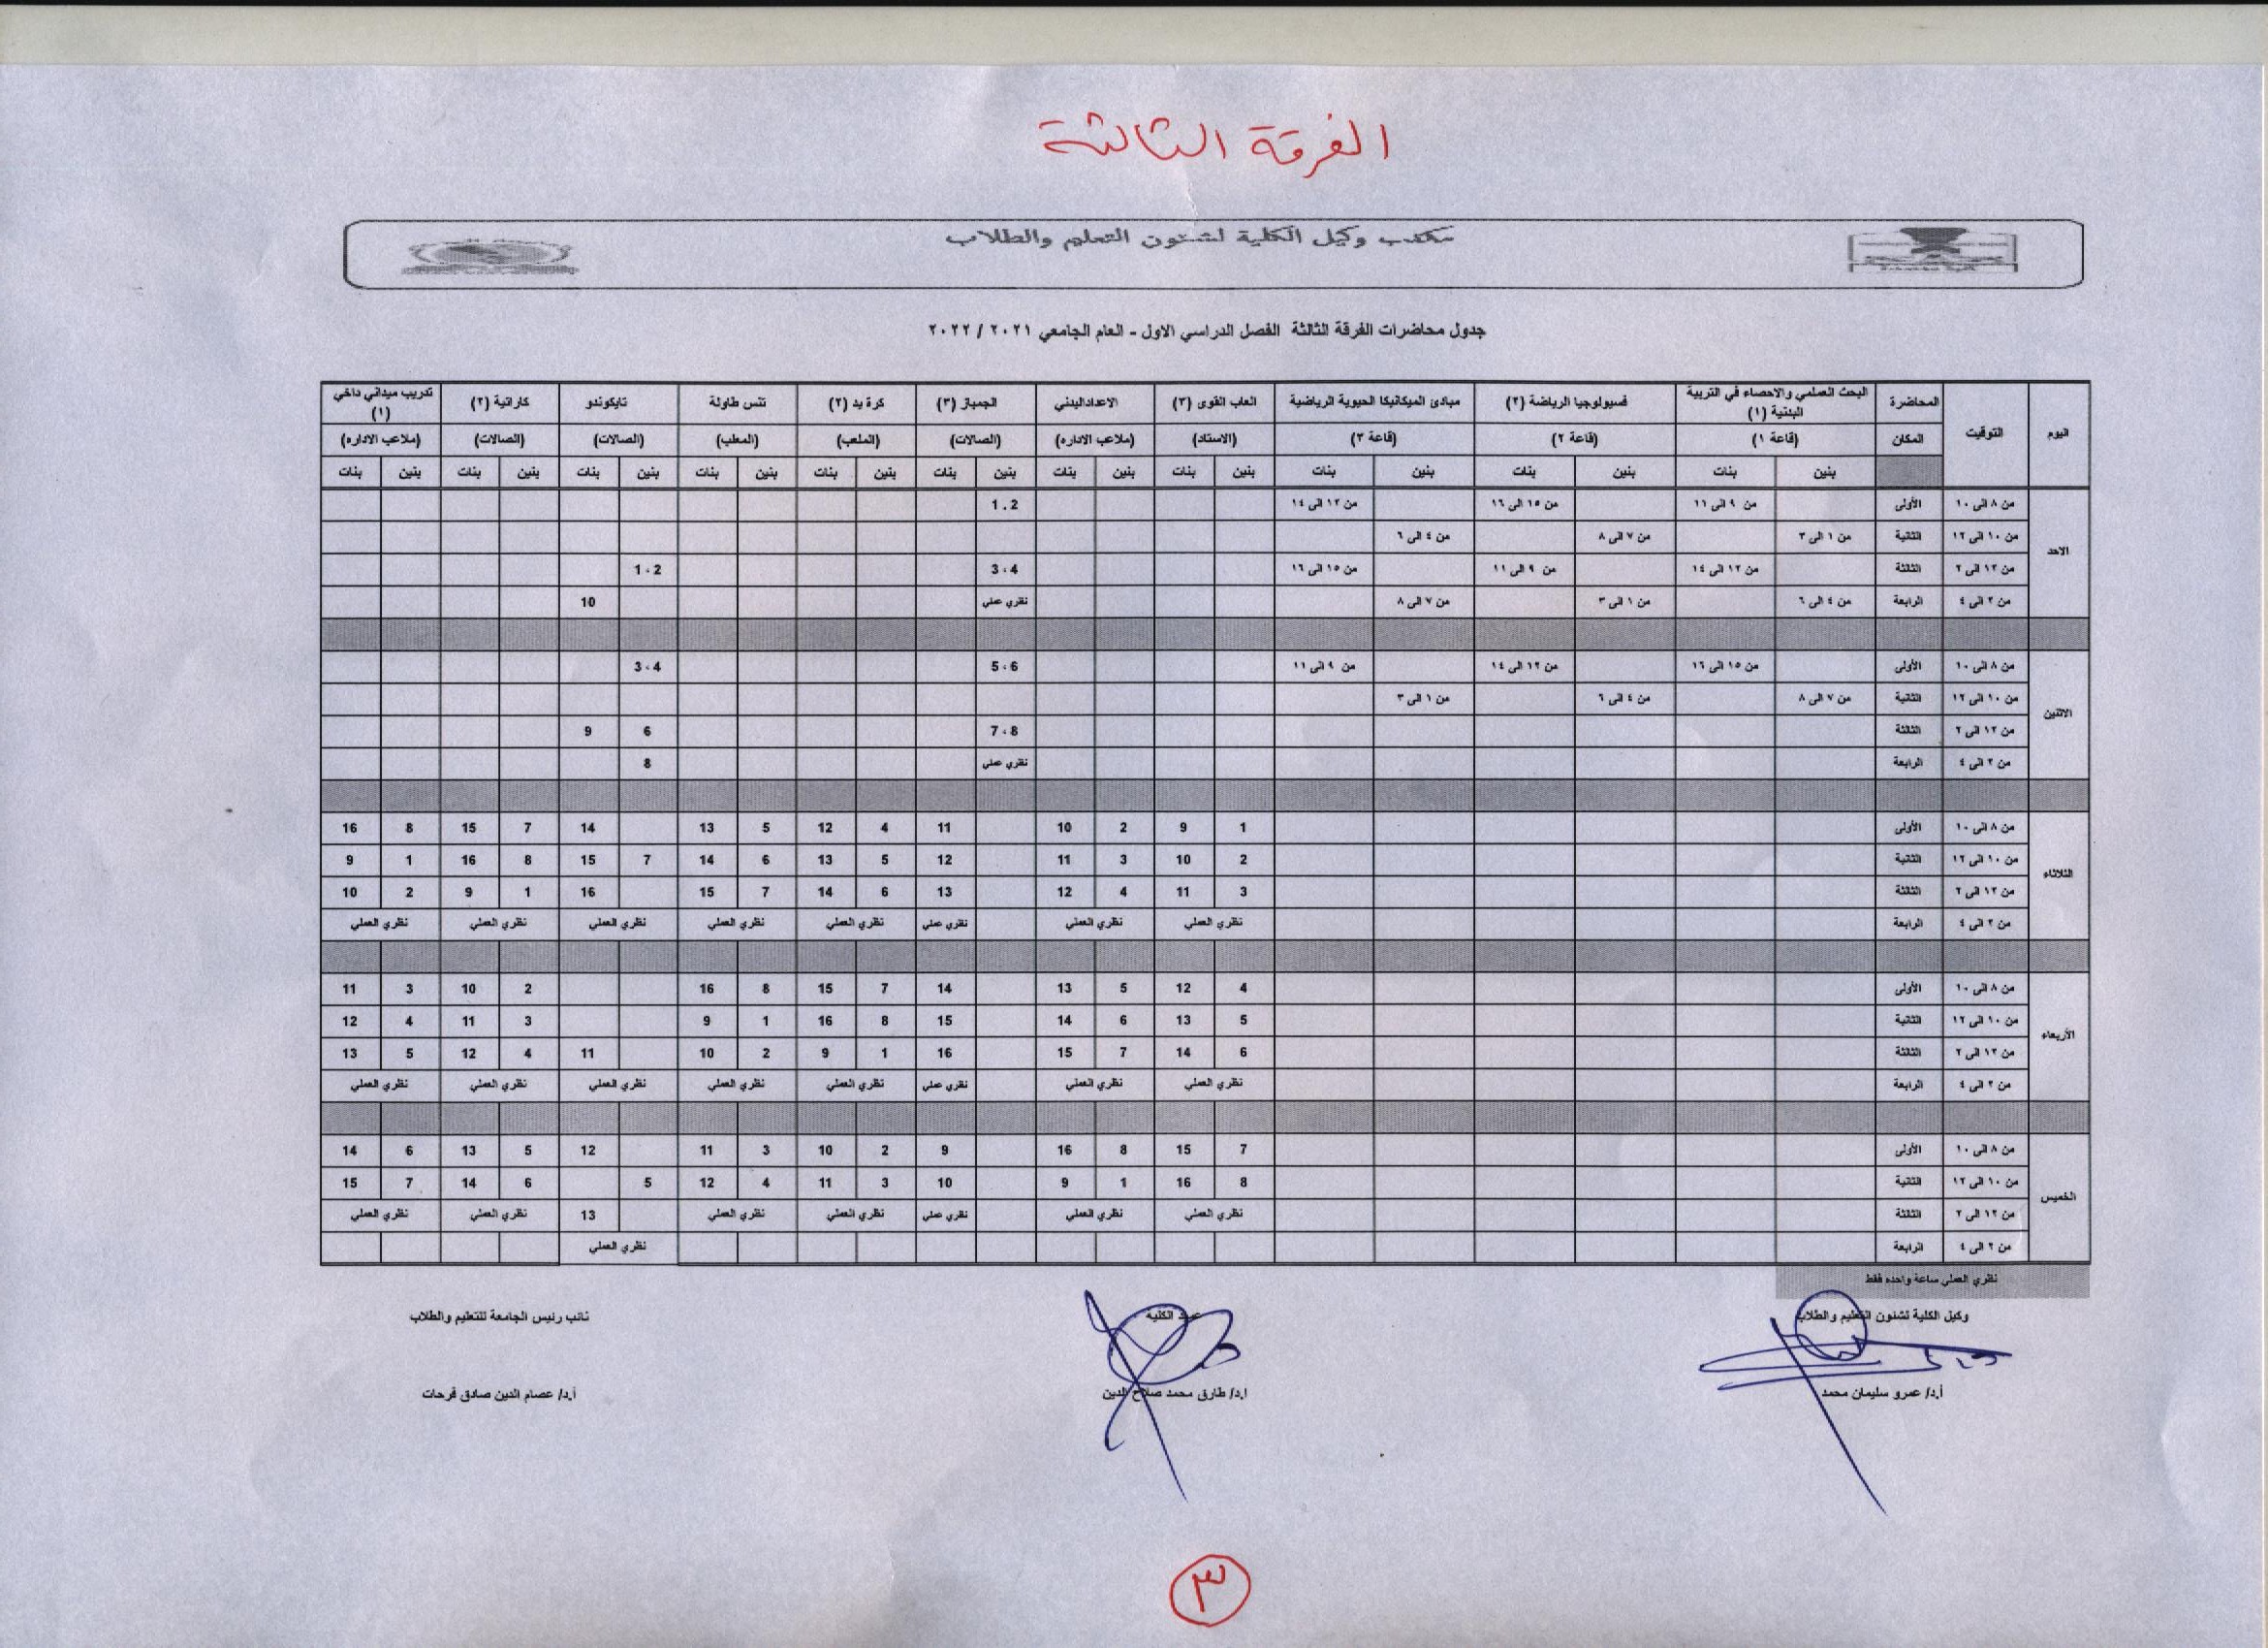 الفرقة الثالثة
مكتب وكيل الكلية لشئون التعليم والطلاب
جدول محاضرات الفرقة الثالثة الفصل الدراسي الاول - العام الجامعي ٢٠٢١ / ٢٠٢٢
اليوم التوقيت المحاضرة البحث العلمي والاحصاء في التربية البدنية (١) فسيولوجيا الرياضة (٢) مبادئ الميكانيكا الحيوية الرياضية العاب القوى (٣) الاعدادالبدني الجمباز (٣) كرة يد (٢) تنس طاولة تايكوندو كاراتية (٢) تدريب ميداني داخي (١)
المكان (قاعة ١) (قاعة ٢) (قاعة ٣) (الاستاد) (ملاعب الاداره) (الصالات) (الملعب) (المعلب) (الصالات) (الصالات) (ملاعب الاداره)
بنين بنات بنين بنات بنين بنات بنين بنات بنين بنات بنين بنات بنين بنات بنين بنات بنين بنات بنين بنات بنين بنات
الاحد
من ٨ الى ١٠ الأولى من ٩ الى ١١ من ١٥ الى ١٦ من ١٢ الى ١٤ 1.2
من ١٠ الى ١٢ الثانية من ١ الى ٣ من ٧ الى ٨ من ٤ الى ٦
من ١٢ الى ٢ الثالثة من ١٢ الى ١٤ من ٩ الى ١١ من ١٥ الى ١٦ 3،4 1،2
من ٢ الى ٤ الرابعة من ٤ الى ٦ من ١ الى ٣ من ٧ الى ٨ نظري عملي 10
الاثنين
من ٨ الى ١٠ الأولى من ١٥ الى ١٦ من ١٢ الى ١٤ من ٩ الى ١١ 5،6 3،4
من ١٠ الى ١٢ الثانية من ٧ الى ٨ من ٤ الى ٦ من ١ الى ٣
من ١٢ الى ٢ الثالثة 7،8 6 9
من ٢ الى ٤ الرابعة نظري عملي 8
الثلاثاء
من ٨ الى ١٠ الأولى 1 9 2 10 11 4 12 5 13 14 7 15 8 16
من ١٠ الى ١٢ الثانية 2 10 3 11 12 5 13 6 14 7 15 8 16 1 9
من ١٢ الى ٢ الثالثة 3 11 4 12 13 6 14 7 15 16 1 9 2 10
من ٢ الى ٤ الرابعة نظري العملي نظري العملي نظري عملي نظري العملي نظري العملي نظري العملي نظري العملي نظري العملي
الأربعاء
من ٨ الى ١٠ الأولى 4 12 5 13 14 7 15 8 16 2 10 3 11
من ١٠ الى ١٢ الثانية 5 13 6 14 15 8 16 1 9 3 11 4 12
من ١٢ الى ٢ الثالثة 6 14 7 15 16 1 9 2 10 11 4 12 5 13
من ٢ الى ٤ الرابعة نظري العملي نظري العملي نظري عملي نظري العملي نظري العملي نظري العملي نظري العملي نظري العملي
الخميس
من ٨ الى ١٠ الأولى 7 15 8 16 9 2 10 3 11 12 5 13 6 14
من ١٠ الى ١٢ الثانية 8 16 1 9 10 3 11 4 12 5 6 14 7 15
من ١٢ الى ٢ الثالثة نظري العملي نظري العملي نظري عملي نظري العملي نظري العملي 13 نظري العملي نظري العملي
من ٢ الى ٤ الرابعة نظري العملي
نظري العملي ساعة واحده فقط
وكيل الكلية لشئون التعليم والطلاب عميد الكلية نائب رئيس الجامعة للتعليم والطلاب
أ.د/ عمرو سليمان محمد ا.د/ طارق محمد صلاح الدين أ.د/ عصام الدين صادق فرحات
٣